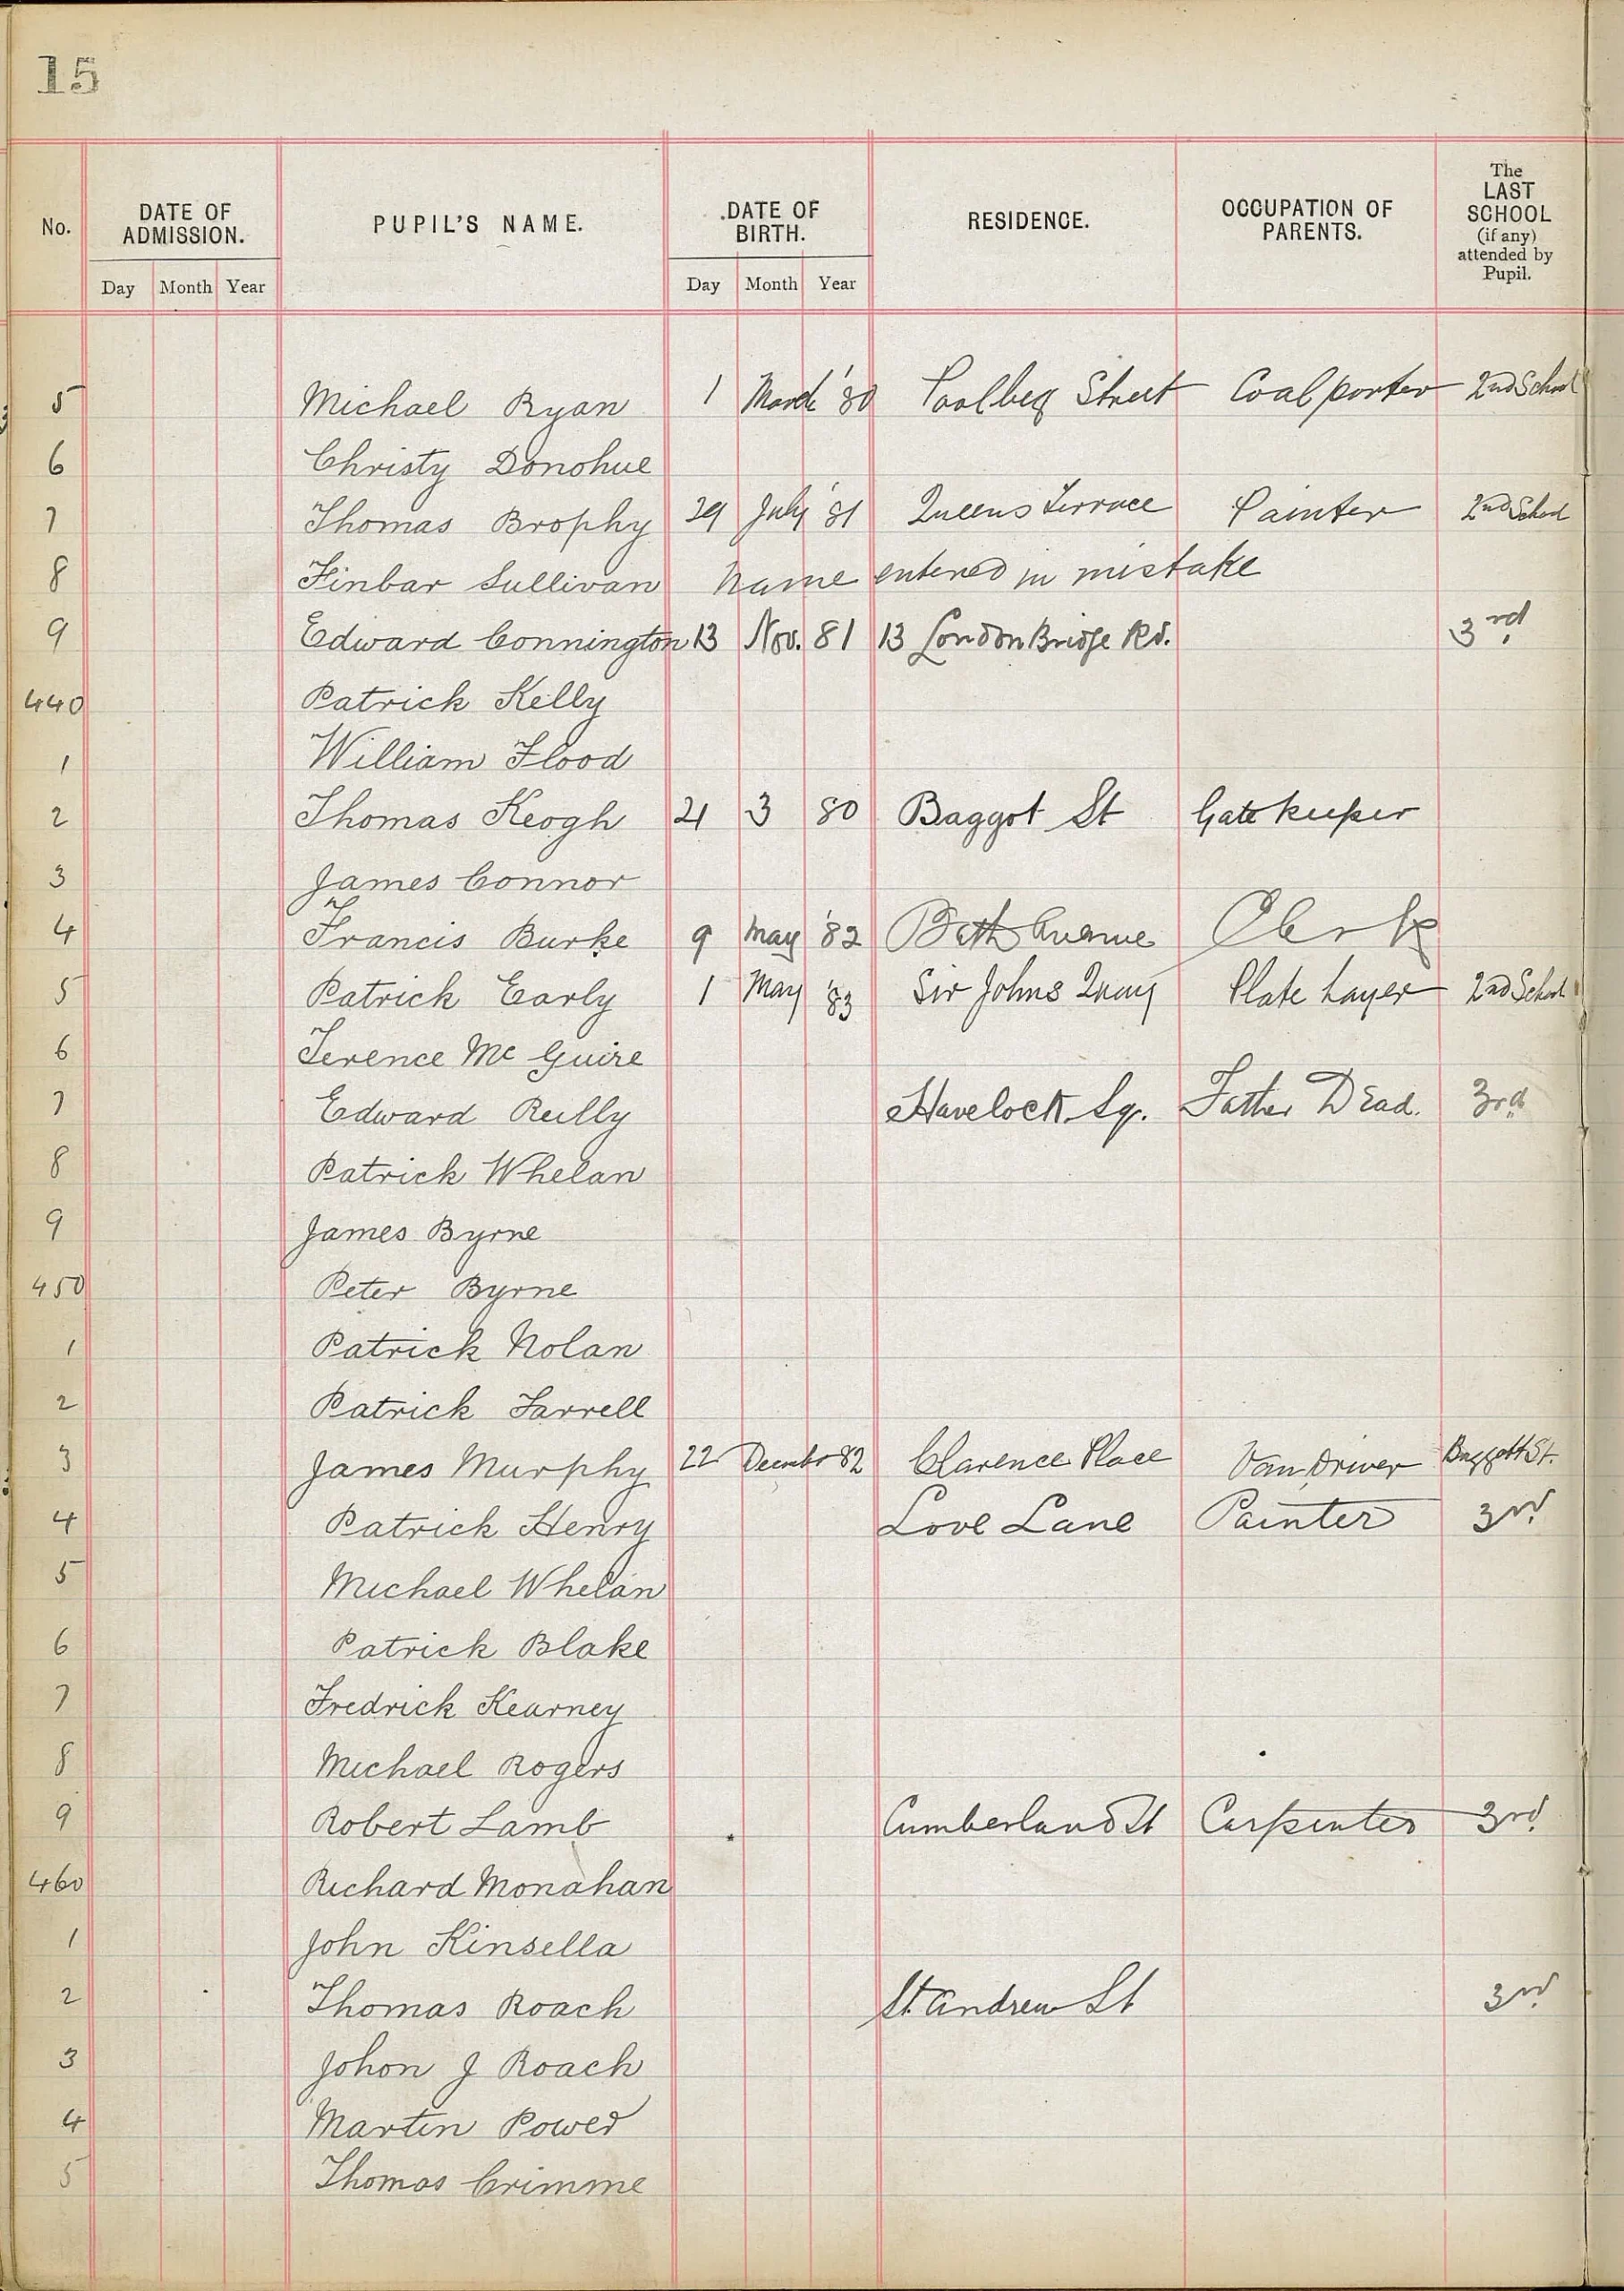 15
No. DATE OF ADMISSION. PUPIL'S NAME. DATE OF BIRTH. RESIDENCE. OCCUPATION OF PARENTS. The LAST SCHOOL (if any) attended by Pupil.
Day Month Year Day Month Year
5 Michael Ryan 1 March '80 Poolbeg Street Coal porter 2nd School
6 Christy Donohue
7 Thomas Brophy 29 July '81 Queens Terrace Painter 2nd School
8 Finbar Sullivan name entered in mistake
9 Edward Connington 13 Nov. 81 13 London Bridge Rd. 3rd
440 Patrick Kelly
1 William Flood
2 Thomas Keogh 21 3 80 Baggot St Gate keeper
3 James Connor
4 Francis Burke 9 May '82 Bath Avenue Clerk
5 Patrick Early 1 May '83 Sir Johns Quay Plate Layer 2nd School
6 Terence Mc Guire
7 Edward Reilly Havelock Sq. Father Dead. 3rd
8 Patrick Whelan
9 James Byrne
450 Peter Byrne
1 Patrick Nolan
2 Patrick Farrell
3 James Murphy 22 Decembr 82 Clarence Place Van Driver Baggott St.
4 Patrick Henry Love Lane Painter 3rd
5 Michael Whelan
6 Patrick Blake
7 Fredrick Kearney
8 Michael Rogers
9 Robert Lamb Cumberland St Carpenter 3rd
460 Richard Monahan
1 John Kinsella
2 Thomas Roach St. Andrew St 3rd
3 Johon J Roach
4 Martin Power
5 Thomas Crimme